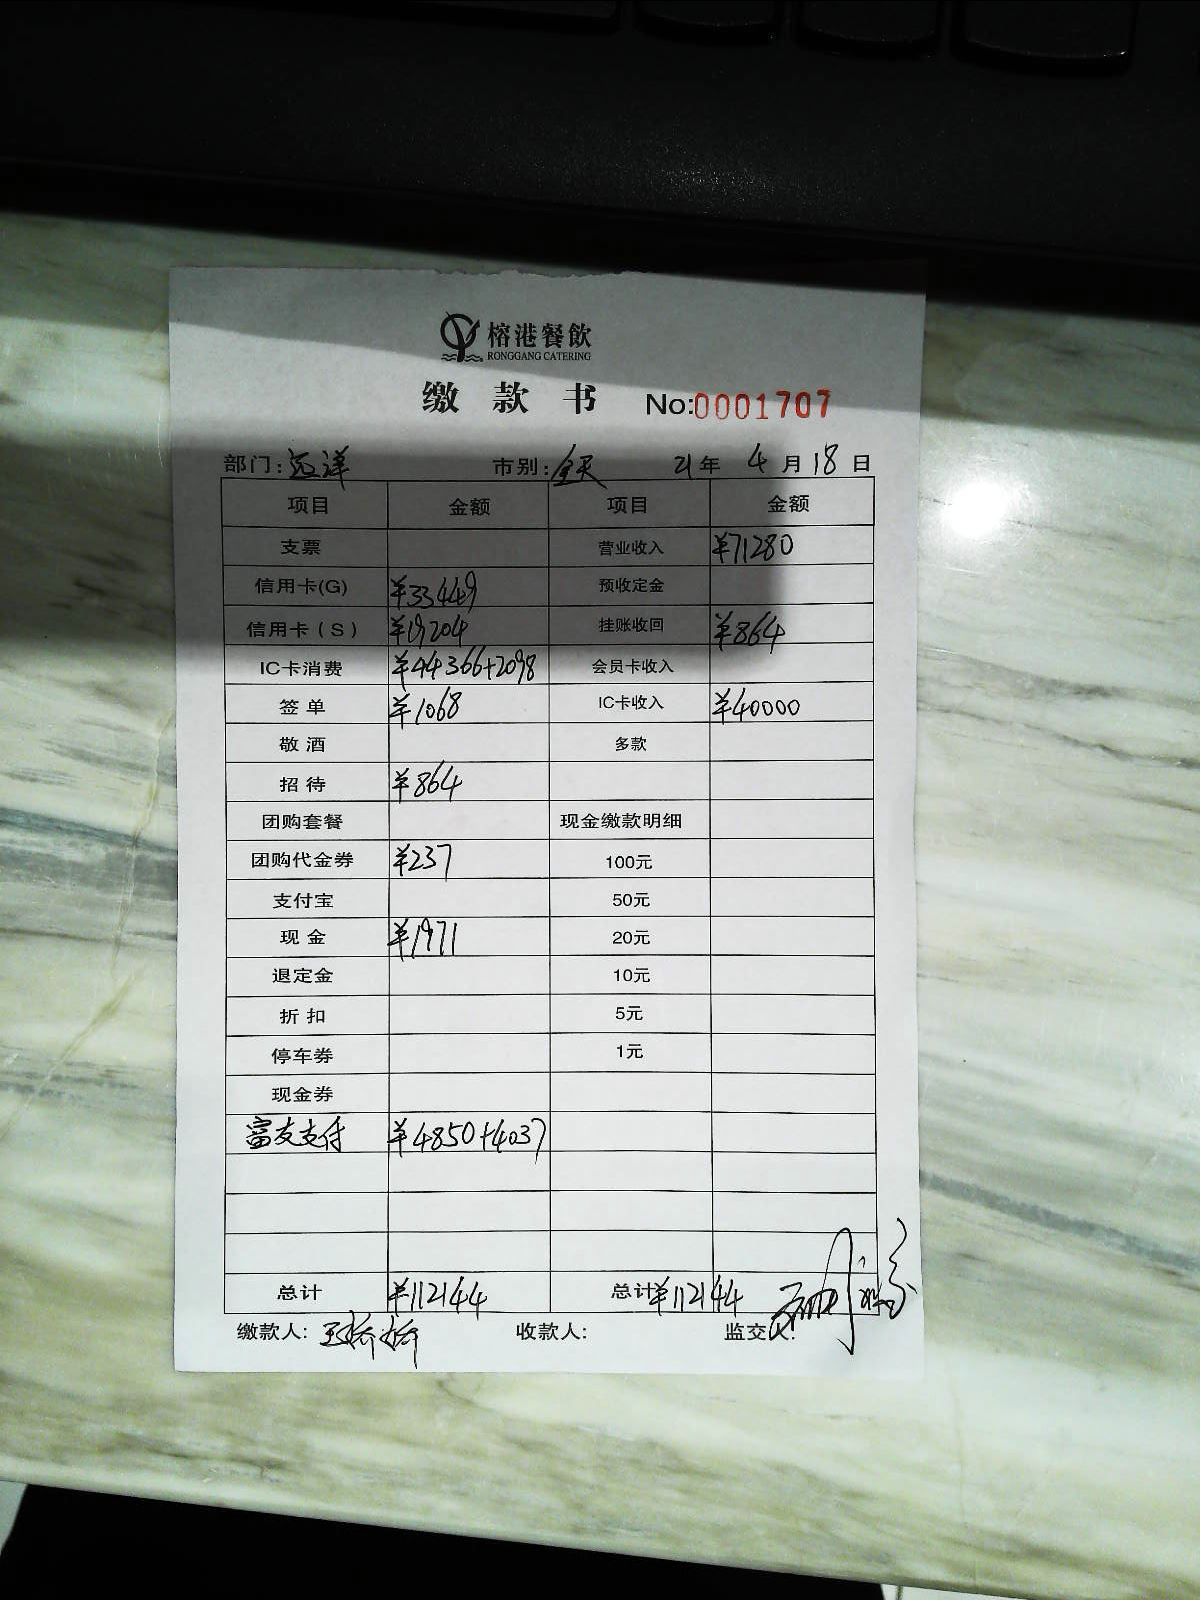 榕港餐飲
RONGGANG CATERING
缴款书 No:0001707
部门:远洋 市别:全天 21年 4月18日
项目 金额 项目 金额
支票 营业收入 ¥71280
信用卡(G) ¥33449 预收定金
信用卡(S) ¥19204 挂账收回 ¥864
IC卡消费 ¥44366+2098 会员卡收入
签单 ¥1068 IC卡收入 ¥40000
敬酒 多款
招待 ¥864
团购套餐 现金缴款明细
团购代金券 ¥237 100元
支付宝 50元
现金 ¥1971 20元
退定金 10元
折扣 5元
停车券 1元
现金券
富友支付 ¥4850+4037
总计 ¥112144 总计 ¥112144
缴款人: 收款人: 监交人: